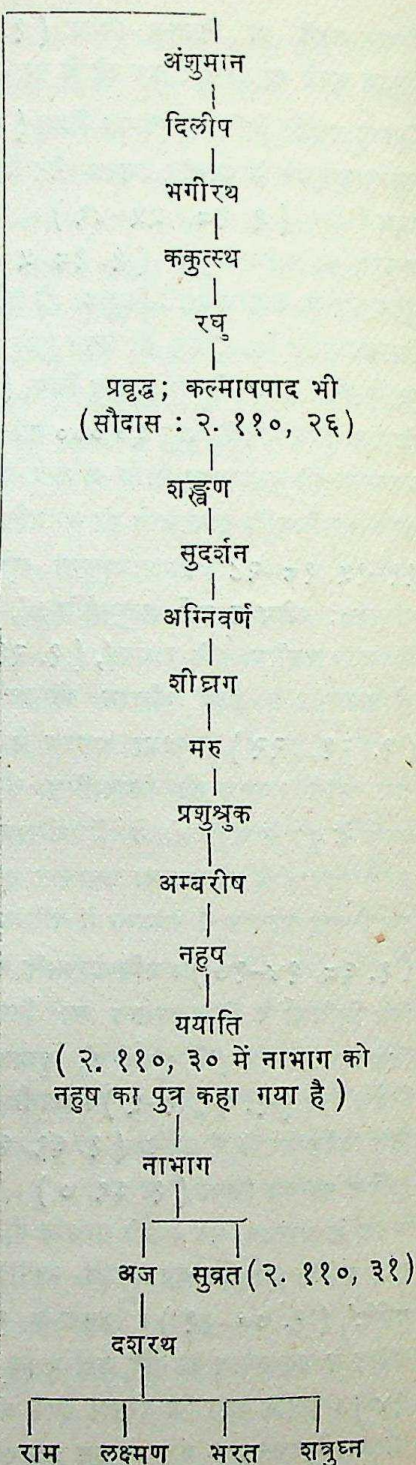 अंशुमान
दिलीप
भगीरथ
ककुत्स्थ
रघु
प्रवृद्ध; कल्माषपाद भी
(सौदास : २. ११०, २६)
शङ्खण
सुदर्शन
अग्निवर्ण
शीघ्रग
मरु
प्रशुश्रुक
अम्बरीष
नहुष
ययाति
( २. ११०, ३० में नाभाग को
नहुष का पुत्र कहा गया है )
नाभाग
अज सुव्रत (२. ११०, ३१)
दशरथ
राम लक्ष्मण भरत शत्रुघ्न